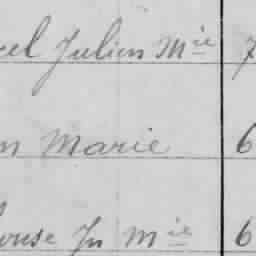 cel Julien Mie 7
n Marie 6
ouse Jn Mie 6